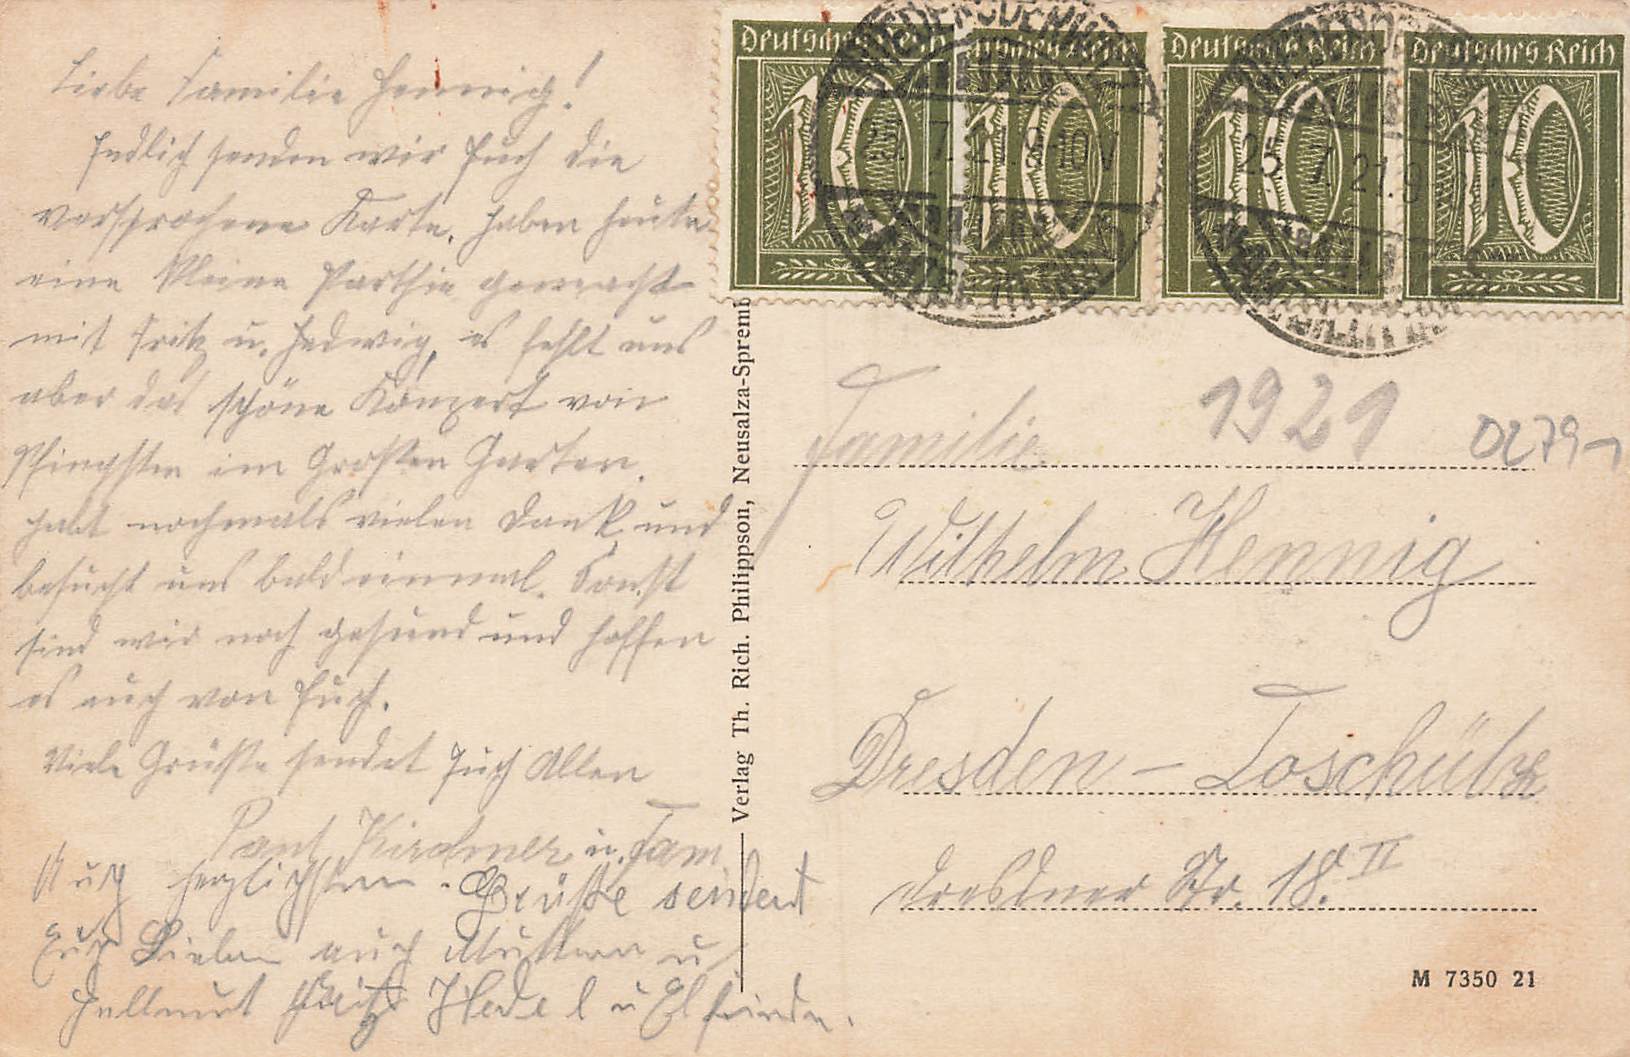 Liebe Familie Hennig!
Endlich senden wir Euch die
versprochene Karte. Haben heute
eine kleine Parthie gemacht
mit Fritz u. Hedwig, es fehlt uns
aber das schöne Konzert von
Pfingsten im Großen Garten.
Habt nochmals vielen Dank und
besucht uns bald einmal. Sonst
sind wir noch gesund und hoffen
es auch von Euch.
Viele Grüße sendet Euch Allen
Paul Kirchner u. Fam
Auch herzlichsten Grüße sendent
Euch Lieben auch Muttern u
Hellmut Fritz Hedel u Elfriede.
Verlag Th. Rich. Philippson, Neusalza-Spremb
Deutsches Reich
10
Deutsches Reich
10
Deutsches Reich
10
Deutsches Reich
10
25. 7. 21. 9-10 V
25. 7. 21. 9
1921
Familie
Wilhelm Hennig
Dresden – Toschütz
Dresdner Str. 18. II
M 7350 21